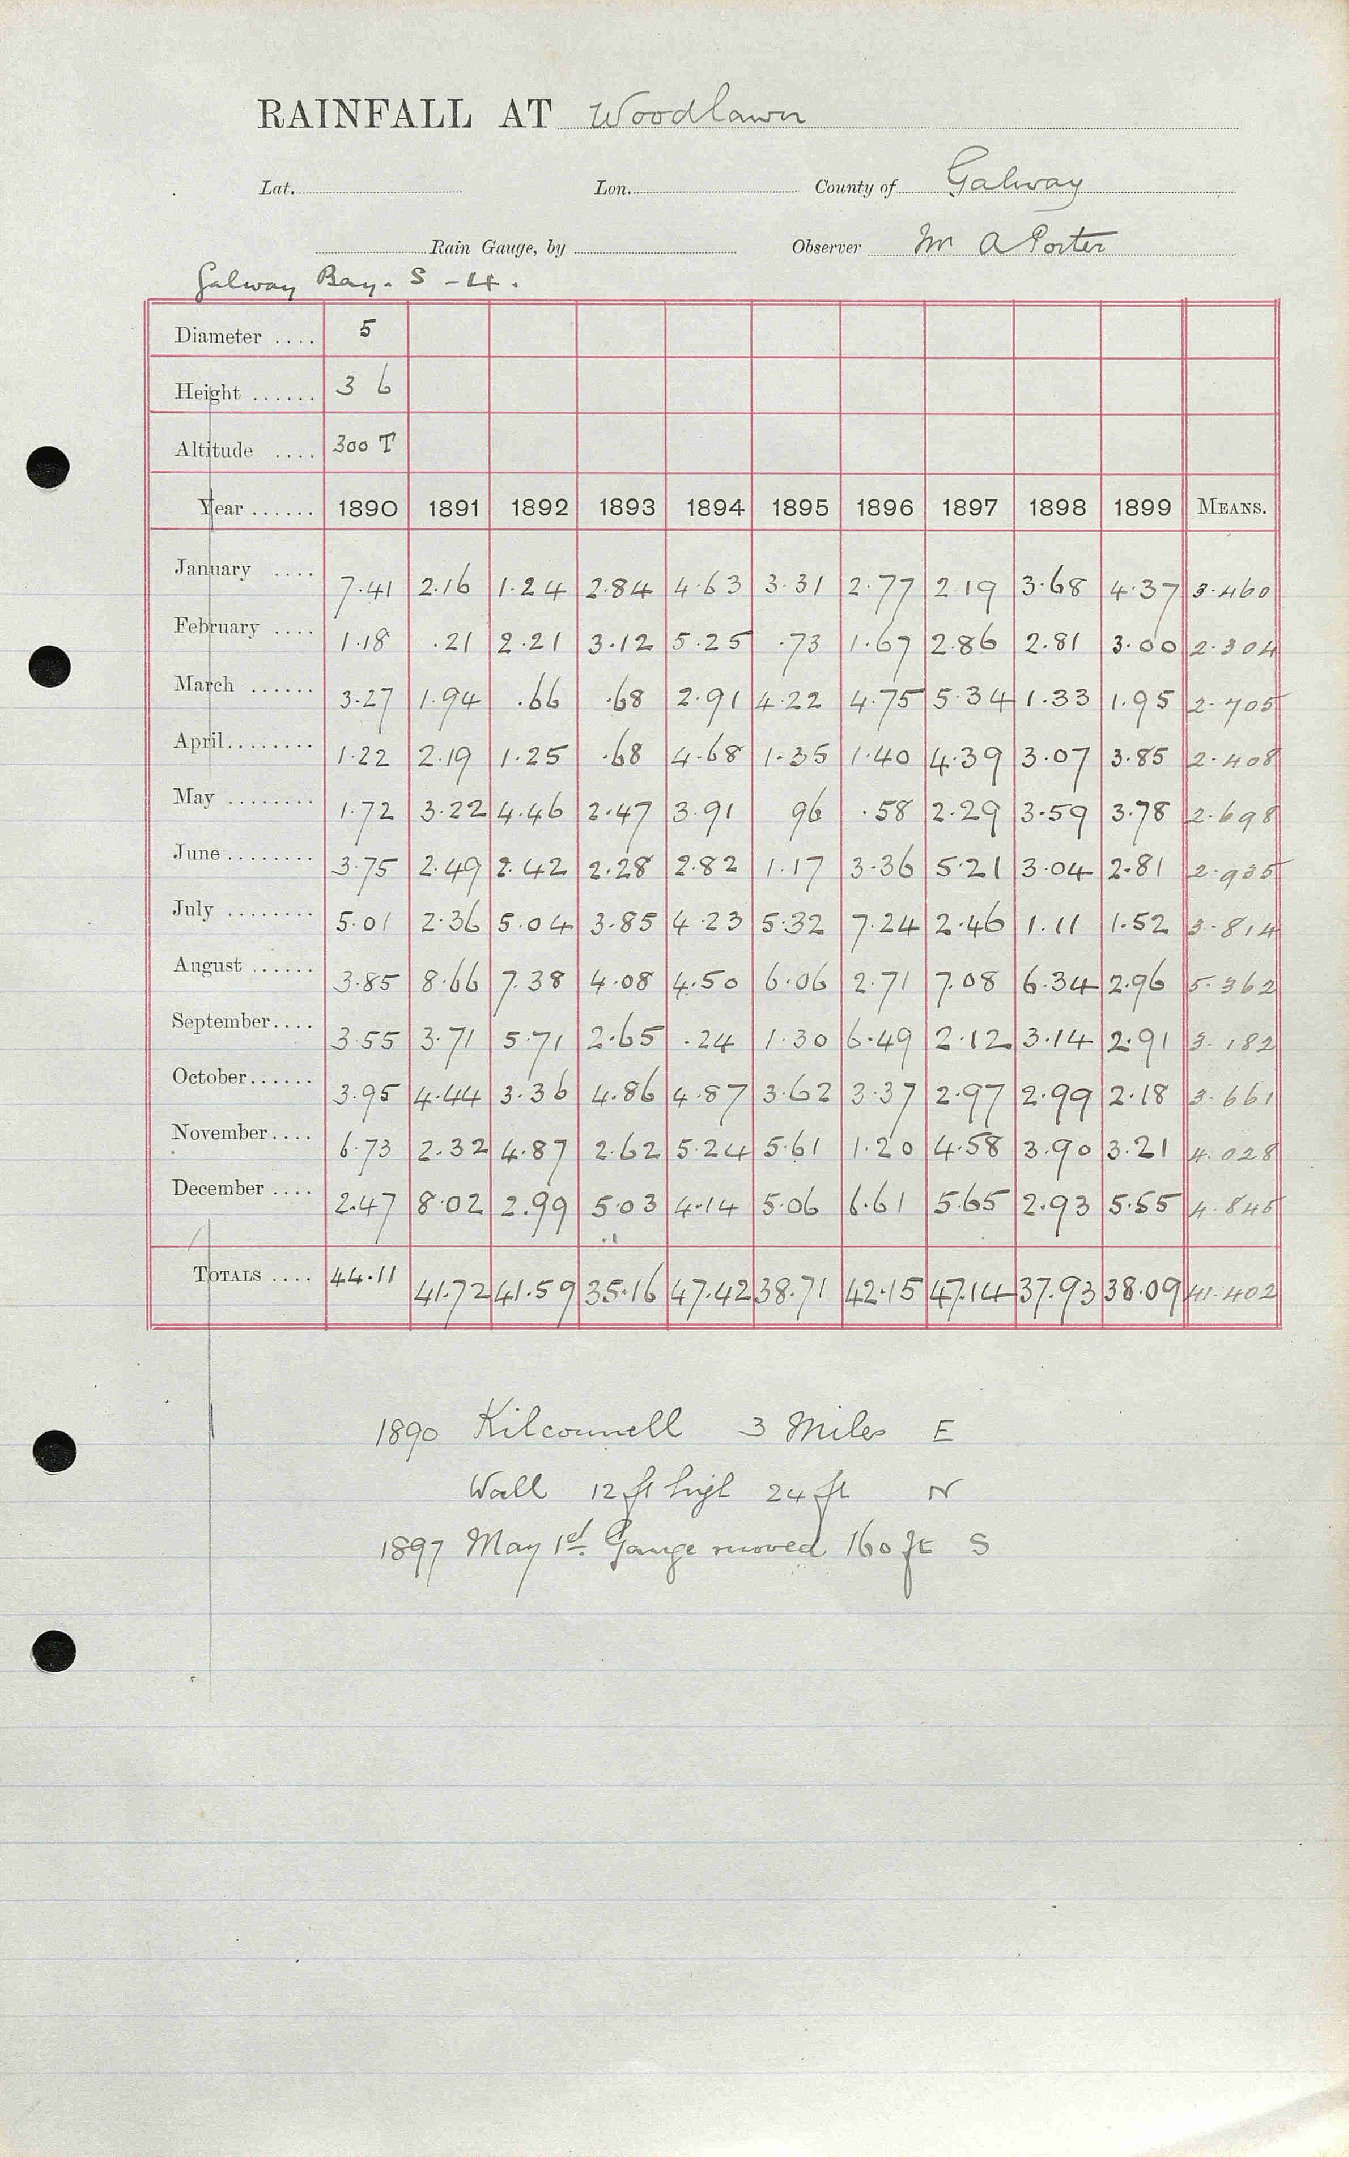 RAINFALL AT Woodlawn
Lat. Lon. County of Galway
Rain Gauge, by Observer Mr A Porter
Galway Bay. S - 4.
Diameter .... 5
Height ...... 3 6
Altitude .... 300 T
Year ...... 1890 1891 1892 1893 1894 1895 1896 1897 1898 1899 MEANS.
January .... 7.41 2.16 1.24 2.84 4.63 3.31 2.77 2.19 3.68 4.37 3.460
February .... 1.18 .21 2.21 3.12 5.25 .73 1.67 2.86 2.81 3.00 2.304
March ...... 3.27 1.94 .66 .68 2.91 4.22 4.75 5.34 1.33 1.95 2.705
April........ 1.22 2.19 1.25 .68 4.68 1.35 1.40 4.39 3.07 3.85 2.408
May ........ 1.72 3.22 4.46 2.47 3.91 96 .58 2.29 3.59 3.78 2.698
June ........ 3.75 2.49 2.42 2.28 2.82 1.17 3.36 5.21 3.04 2.81 2.935
July ........ 5.01 2.36 5.04 3.85 4.23 5.32 7.24 2.46 1.11 1.52 3.814
August ...... 3.85 8.66 7.38 4.08 4.50 6.06 2.71 7.08 6.34 2.96 5.362
September.... 3.55 3.71 5.71 2.65 .24 1.30 6.49 2.12 3.14 2.91 3.182
October...... 3.95 4.44 3.36 4.86 4.87 3.62 3.37 2.97 2.99 2.18 3.661
November.... 6.73 2.32 4.87 2.62 5.24 5.61 1.20 4.58 3.90 3.21 4.028
December .... 2.47 8.02 2.99 5.03 4.14 5.06 6.61 5.65 2.93 5.55 4.845
TOTALS .... 44.11 41.72 41.59 35.16 47.42 38.71 42.15 47.14 37.93 38.09 41.402
1890 Kilconnell 3 Miles E
Wall 12 ft high 24 ft N
1897 May 1st. Gauge moved 160 ft S